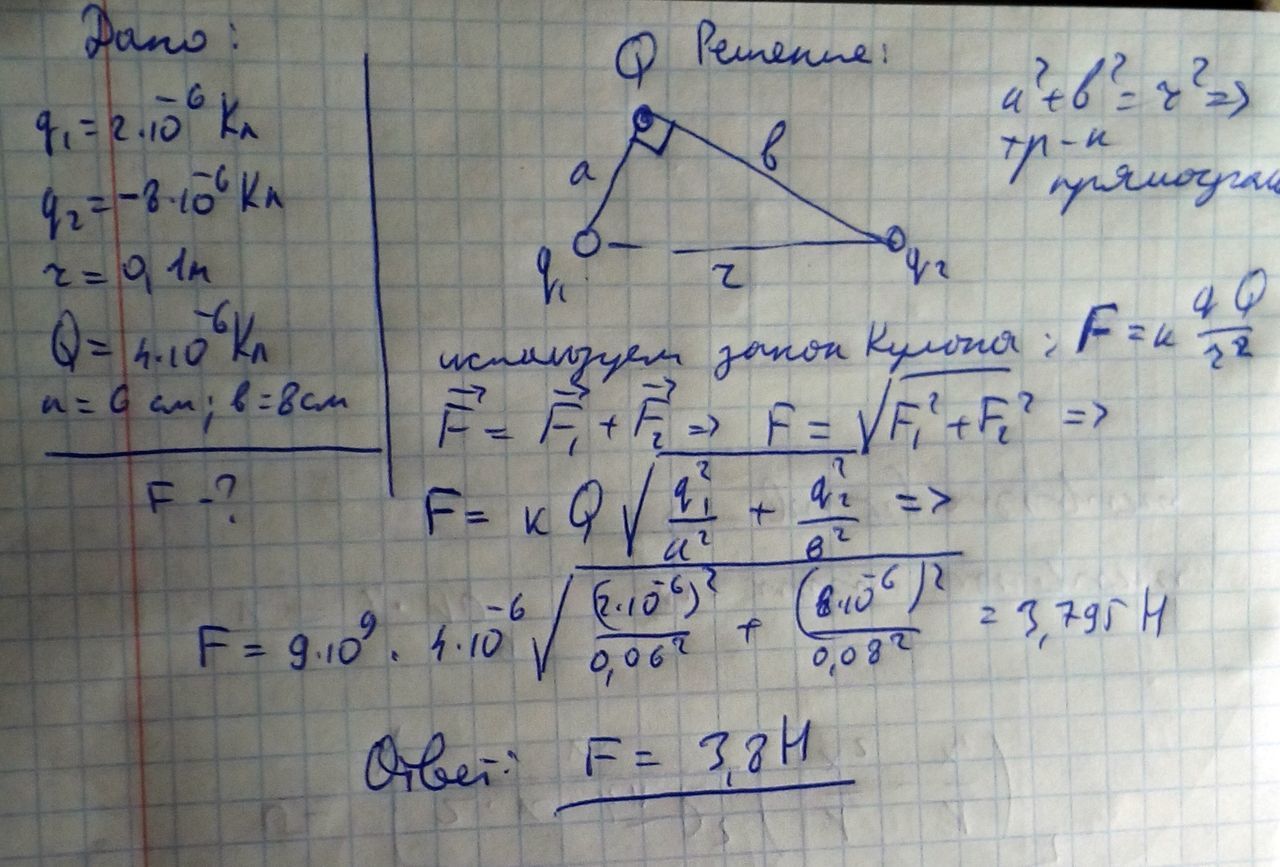 Дано:
q₁ = 2·10⁻⁶ Кл
q₂ = -8·10⁻⁶ Кл
r = 0,1м
Q = 4·10⁻⁶ Кл
a = 6 см; в = 8 см
F - ?
Решение:
Q
a
в
q₁
r
q₂
a² + в² = r² =>
тр-к
прямоугол
используем закон Кулона: F = к qQ/r²
F⃗ = F⃗₁ + F⃗₂ => F = √(F₁² + F₂²) =>
F = кQ √(q₁²/a² + q₂²/в²) =>
F = 9·10⁹ · 4·10⁻⁶ √((2·10⁻⁶)²/0,06² + (8·10⁻⁶)²/0,08²) = 3,795 Н
Ответ: F = 3,8 Н